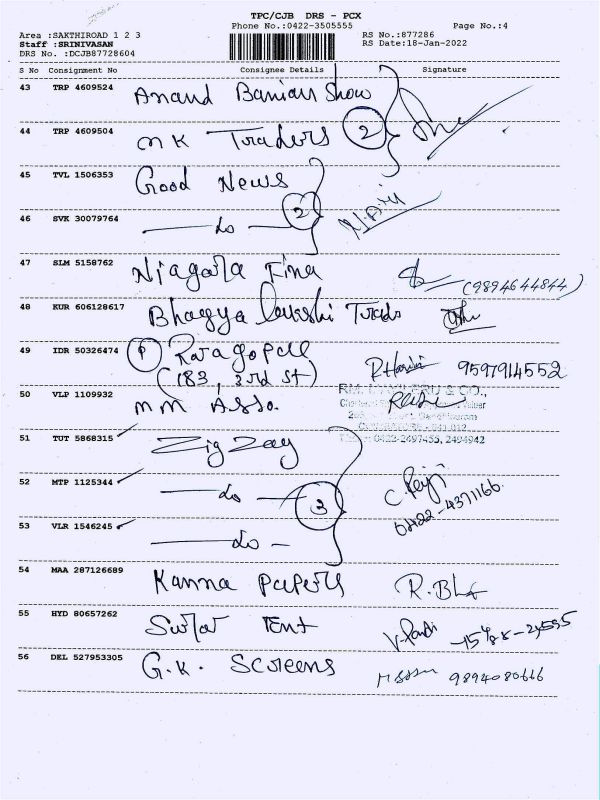 TPC/CJB DRS - PCX
Phone No.:0422-3505555 Page No.:4
Area :SAKTHIROAD 1 2 3 RS No.:877286
Staff :SRINIVASAN RS Date:18-Jan-2022
DRS No. :DCJB87728604
S No Consignment No Consignee Details Signature
43 TRP 4609524 Anand Banian Show
44 TRP 4609504 M K Traders 2
45 TVL 1506353 Good News
46 SVK 30079764 do 2
47 SLM 5158762 Niagara Fine (9894644844)
48 KUR 606128617 Bhagya Lakshi Trads
49 IDR 50326474 P Rajagopal
(183, 3rd St) 9597914552
50 VLP 1109932 M M Asso.
& CO.,
0422-2497455, 2494942
51 TUT 5868315 Zig Zag
52 MTP 1125344 do 3 C.
0422-4371166
53 VLR 1546245 do
54 MAA 287126689 Kanna Papers
55 HYD 80657262 Tent
56 DEL 527953305 G.K. Screens 9894080666